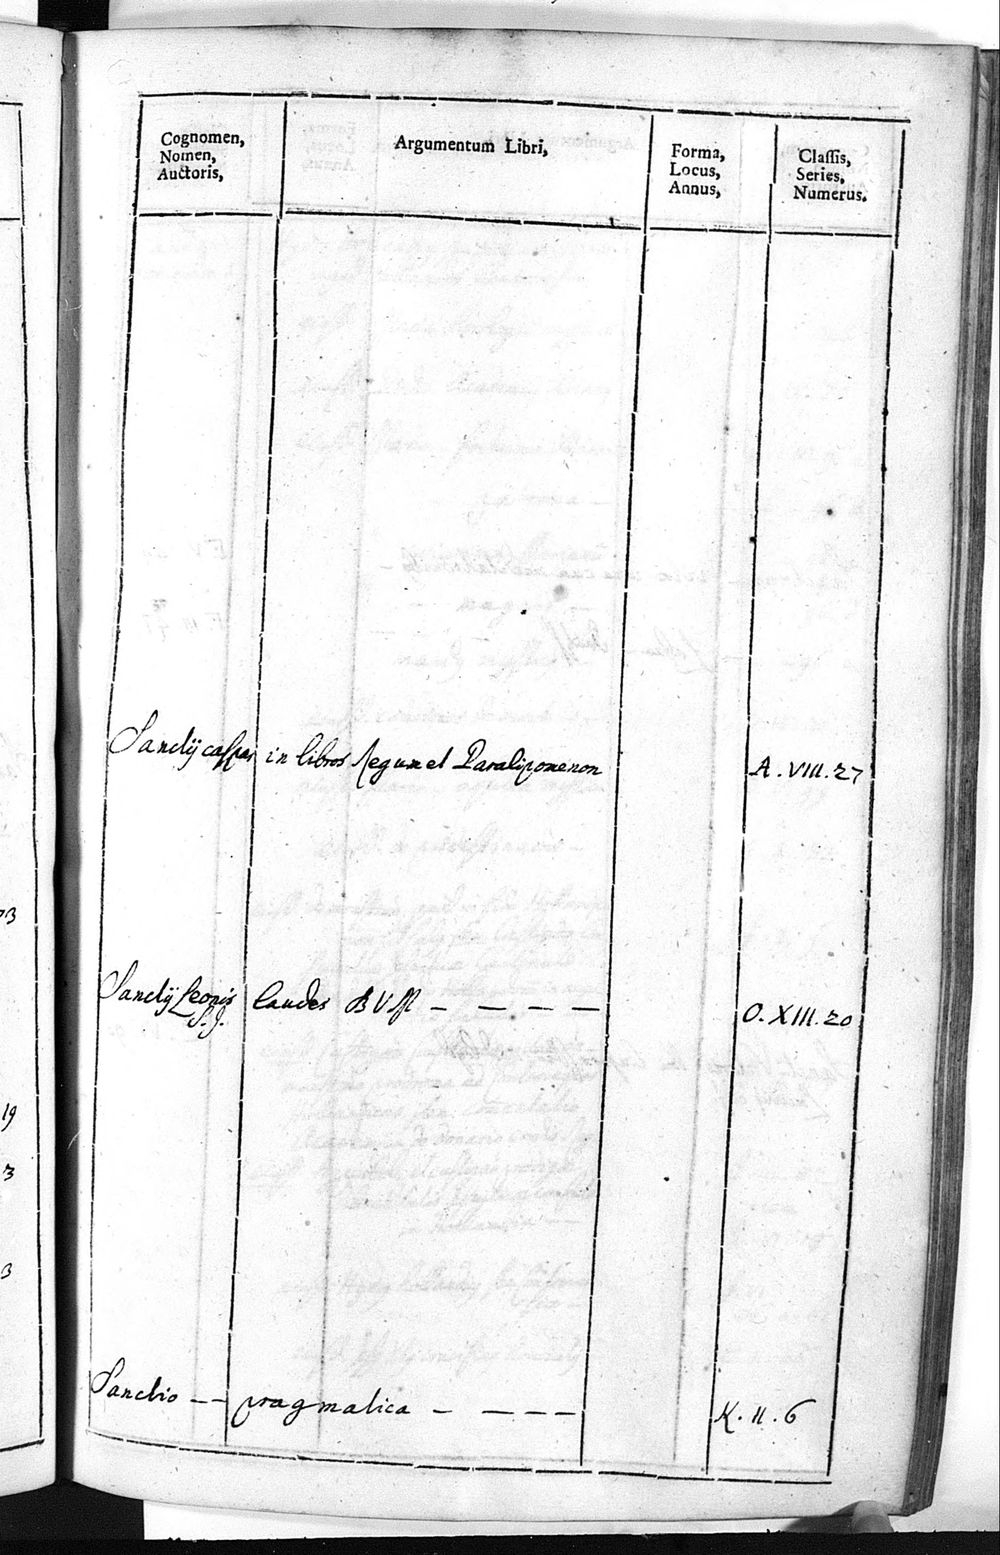 Cognomen,
Nomen,
Auctoris,
Argumentum Libri,
Forma,
Locus,
Annus,
Classis,
Series,
Numerus.
Sanctij caspar in libros Regum et Paralipomenon A. VIII. 27
Sanctij Leonis laudes BVM — — — — O. XIII. 20
S.J.
Sanctio — — pragmatica — — — — K. II. 6
73
19
3
3